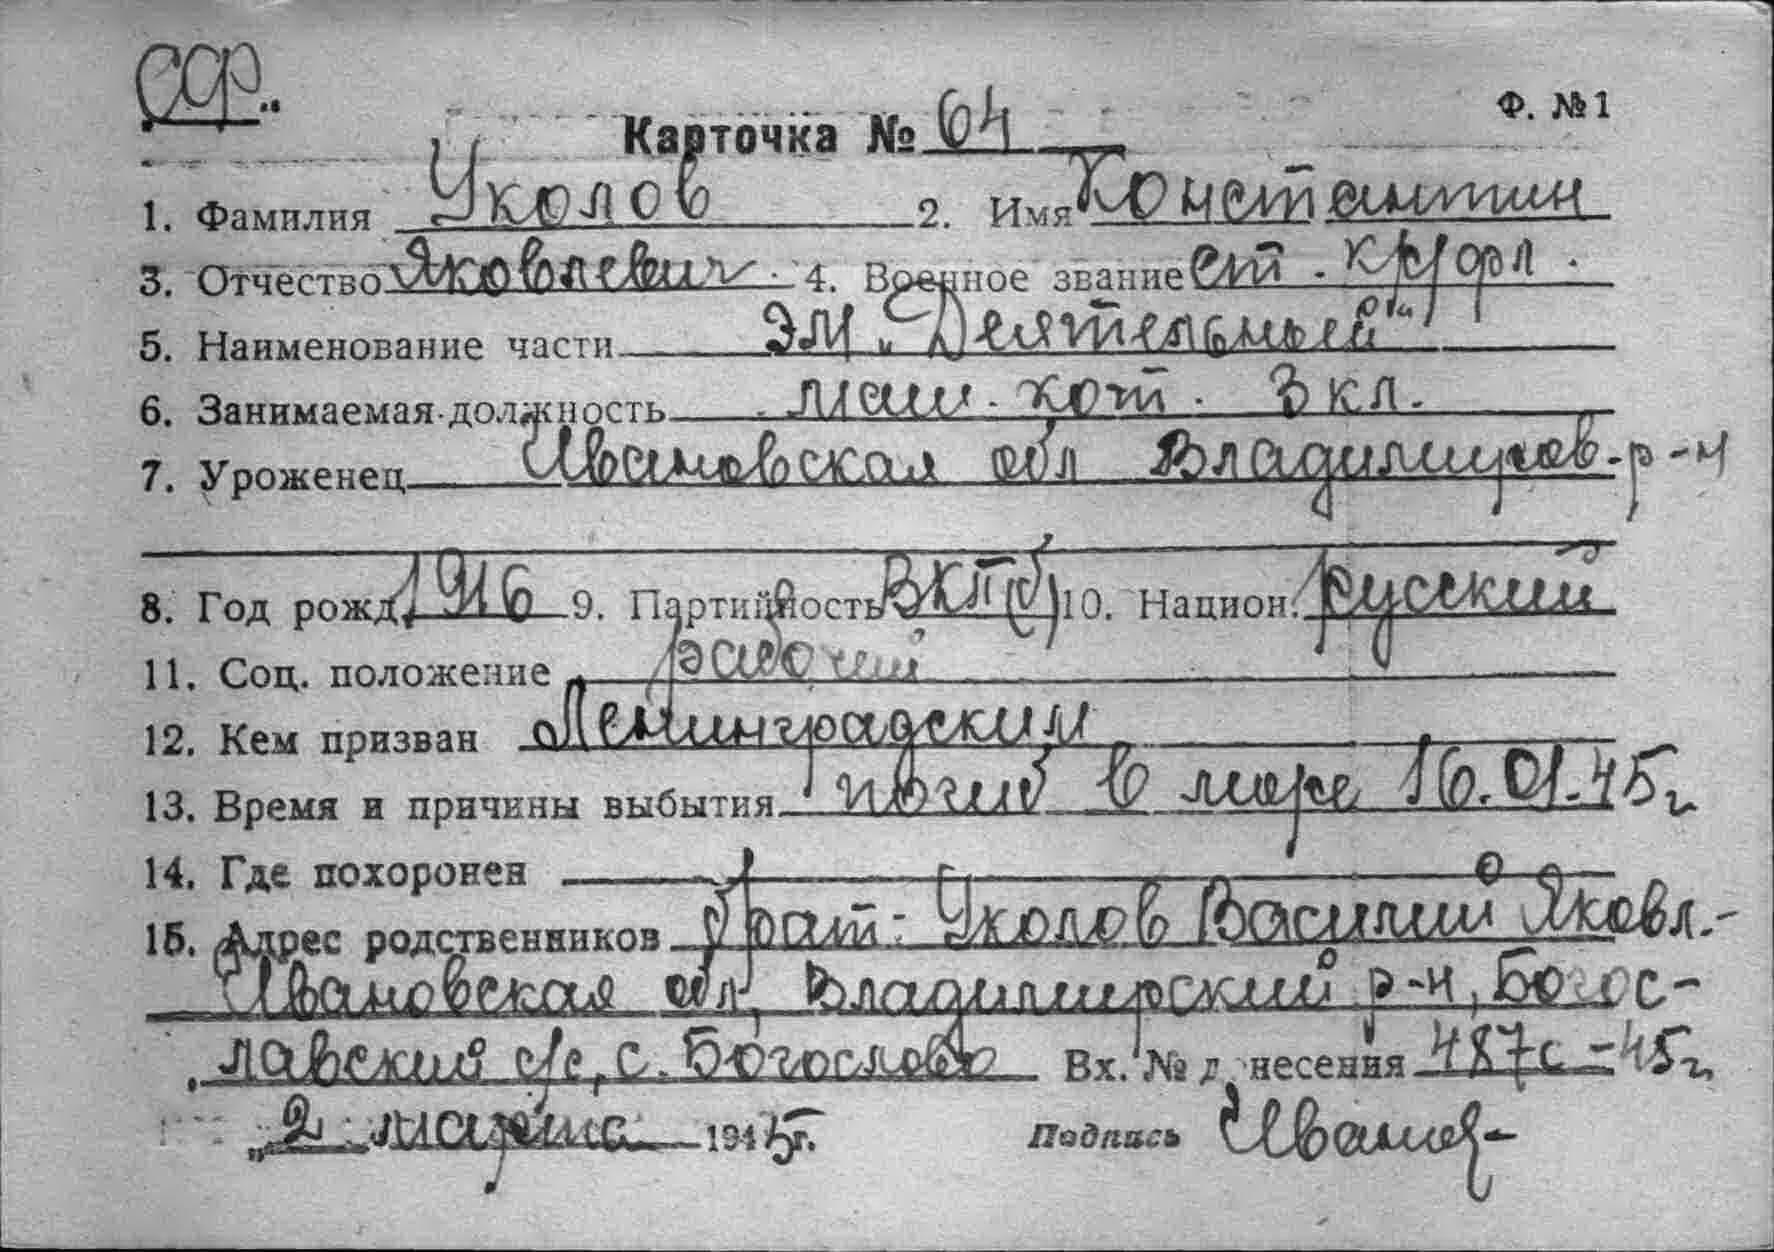 ССФ.
Ф. №1
Карточка № 64
1. Фамилия Уколов 2. Имя Константин
3. Отчество Яковлевич. 4. Военное звание ст. кр/фл.
5. Наименование части ЭМ „Деятельный"
6. Занимаемая должность маш. кот. 3 кл.
7. Уроженец Ивановская обл Владимиров. р-н
8. Год рожд. 1916 9. Партийность ВКП(б) 10. Национ. русский
11. Соц. положение рабочий
12. Кем призван Ленинградским
13. Время и причины выбытия погиб в море 16.01.45г
14. Где похоронен
15. Адрес родственников брат: Уколов Василий Яковл.-
Ивановская обл, Владимирский р-н, Богос-
лавский с/с, с. Богослово Вх. № д несения 487с-45г.
„2 марта 1945г. Подпись Иванов